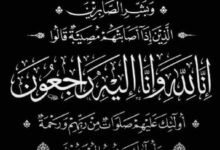 وَبَشِّرِ الصَّابِرِينَ
الَّذِينَ إِذَا أَصَابَتْهُمْ مُصِيبَةٌ قَالُوا
إِنَّا لِلَّهِ وَإِنَّا إِلَيْهِ رَاجِعُونَ
أُولَئِكَ عَلَيْهِمْ صَلَوَاتٌ مِنْ رَبِّهِمْ وَرَحْمَةٌ